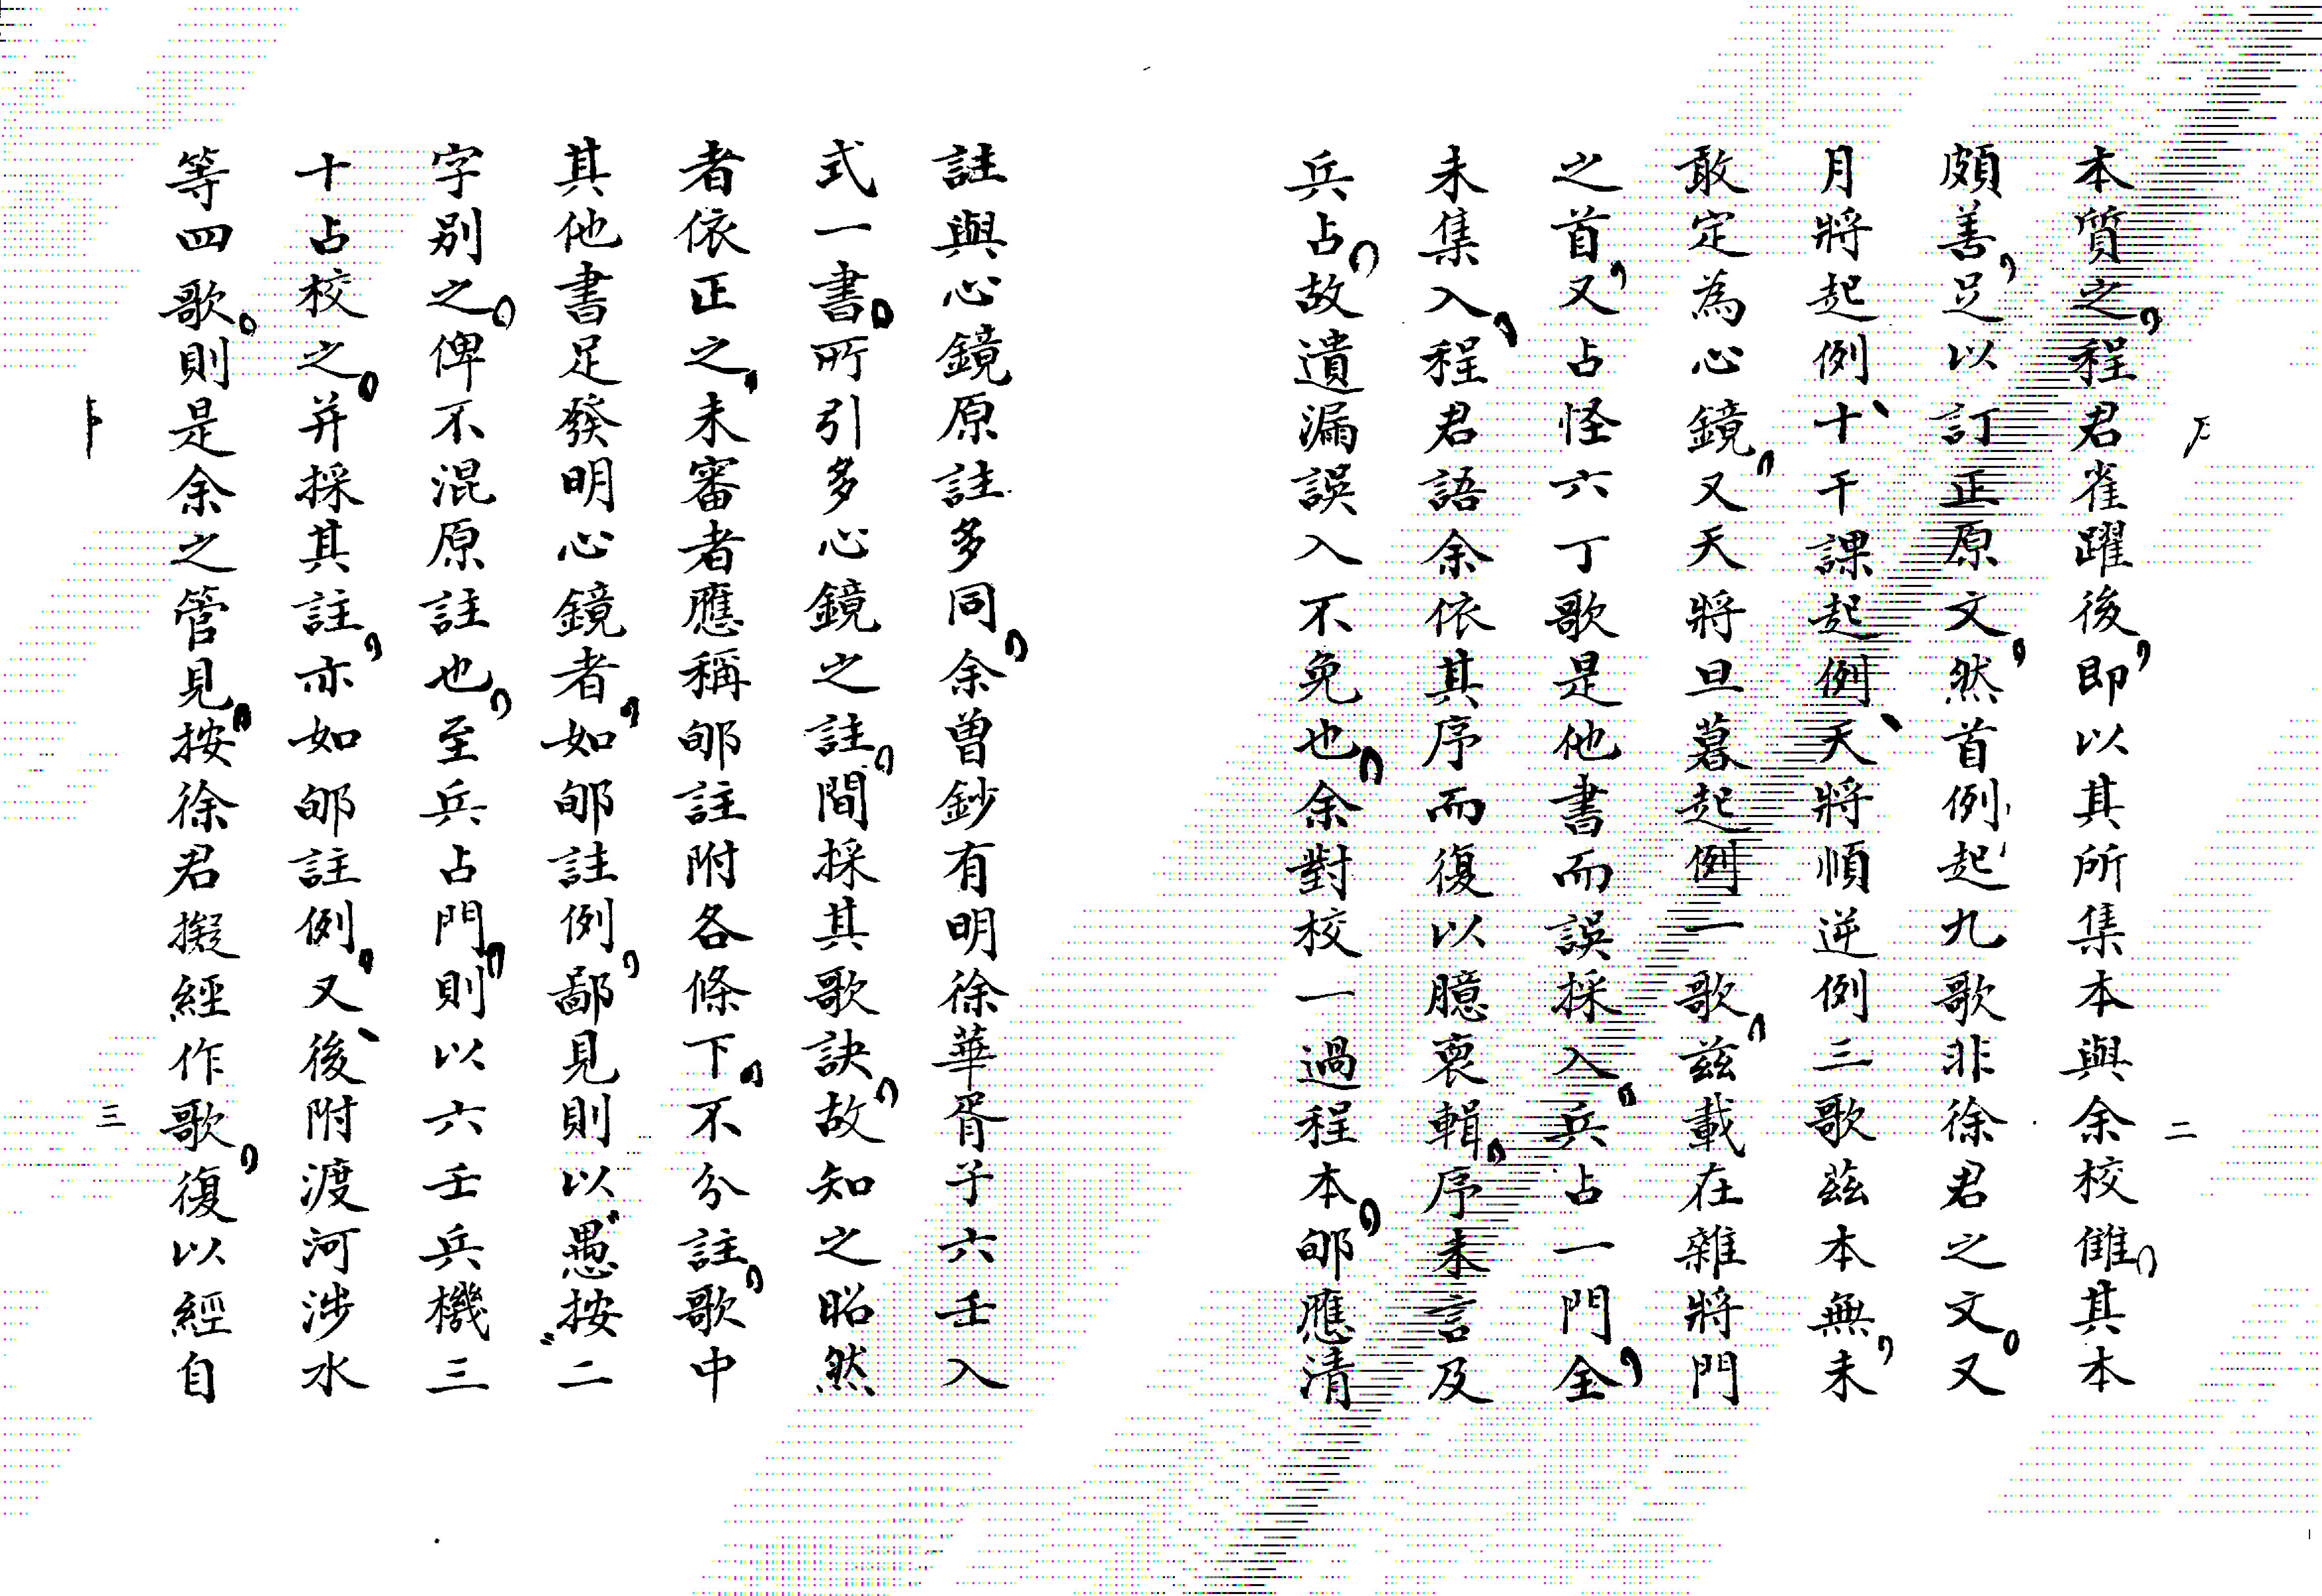 本質之，程君雀躍後，即以其所集本與余校讎，其本
頗善，足以訂正原文，然首例起九歌非徐君之文。又
月將起例、十干課起例、天將順逆例三歌茲本無，未
敢定為心鏡，又天將旦暮起例一歌，茲載在雜將門
之首，又占怪六丁歌是他書而誤採入，兵占一門全，
未集入，程君語余依其序而復以臆裒輯，序未言及
兵占，故遺漏誤入不免也，余對校一過程本，郇應清
二
註與心鏡原註多同，余曾鈔有明徐華胥子六壬入
式一書。所引多心鏡之註，間採其歌訣，故知之昭然
者依正之，未審者應稱郇註附各條下，不分註，歌中
其他書足發明心鏡者，如郇註例，鄙見則以〝愚按〞二
字別之。俾不混原註也，至兵占門，則以六壬兵機三
十占校之。并採其註，亦如郇註例，又、後附渡河涉水
等四歌。則是余之管見，按徐君擬經作歌，復以經自
三